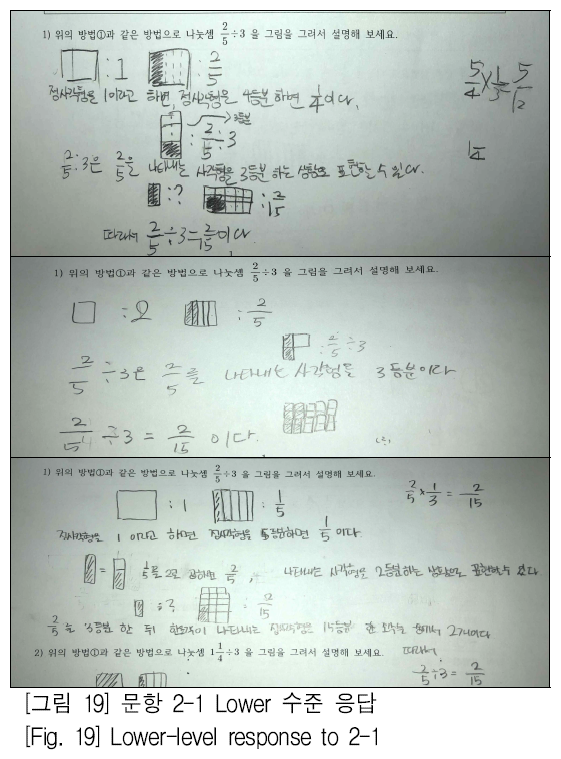 1) 위의 방법①과 같은 방법으로 나눗셈 2/5÷3 을 그림을 그려서 설명해 보세요.
: 1 : 2/5
5/4 × 1/3 = 5/12
정사각형을 1이라고 하면, 정사각형을 4등분하면 1/4이다.
3등분
: 2/5÷3
2/5÷3은 2/5을 나타내는 사각형을 3등분 하는 상황으로 표현할 수 있다.
: ? : 2/15
따라서 2/5÷3=2/15이다.
1) 위의 방법①과 같은 방법으로 나눗셈 2/5÷3 을 그림을 그려서 설명해 보세요.
: 2 : 2/5
: 2/5÷3
2/5÷3은 2/5를 나타내는 사각형을 3등분이다
2/5÷3 = 2/15 이다.
1) 위의 방법①과 같은 방법으로 나눗셈 2/5÷3 을 그림을 그려서 설명해 보세요.
: 1 : 1/5
2/5 × 1/3 = 2/15
정사각형을 1이라고 하면 정사각형을 5등분하면 1/5이다
= 1/5를 2로 곱하면 2/5, 나타내는 사각형을 2등분하는 상황으로 표현할 수 있다
: ? = 2/15
2/5을 3등분 한 뒤 나타내는 정사각형을 15등분 한 2개이다
2) 위의 방법①과 같은 방법으로 나눗셈 1 1/4÷3 을 그림을 그려서 설명해 보세요.
따라서
2/5÷3 = 2/15
[그림 19] 문항 2-1 Lower 수준 응답
[Fig. 19] Lower-level response to 2-1